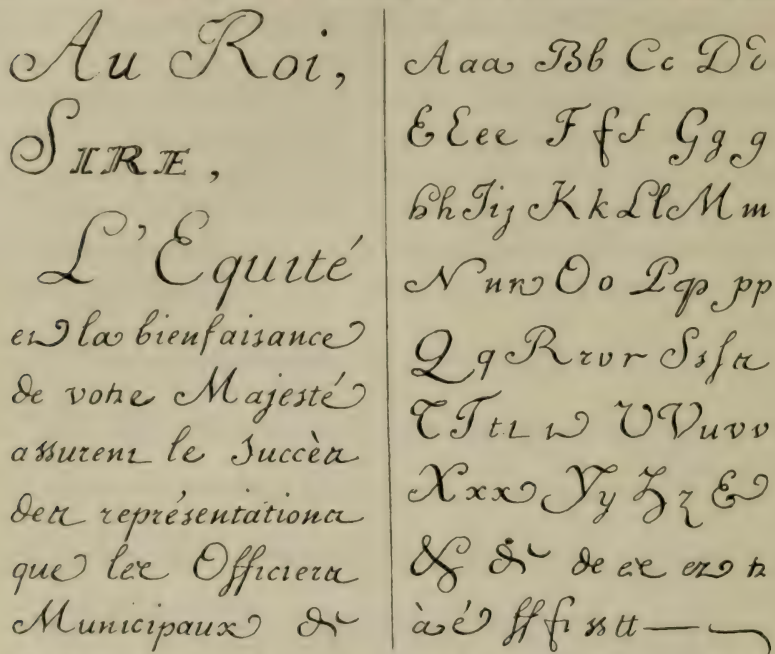 Au Roi,
SIRE,
L'Equité
et la bienfaisance
de votre Majesté
assurent le succès
des représentations
que les Officiers
Municipaux de
Aaa Bb Cc Dd
EEee Ffſ Ggg
hh Iij Kk Ll Mm
Nnn Oo Pp pp
Qq Rrrr Ssſs
TTtt t UVuvv
Xxx Yy Zz &
& de de es et
à é ff fi ss tt